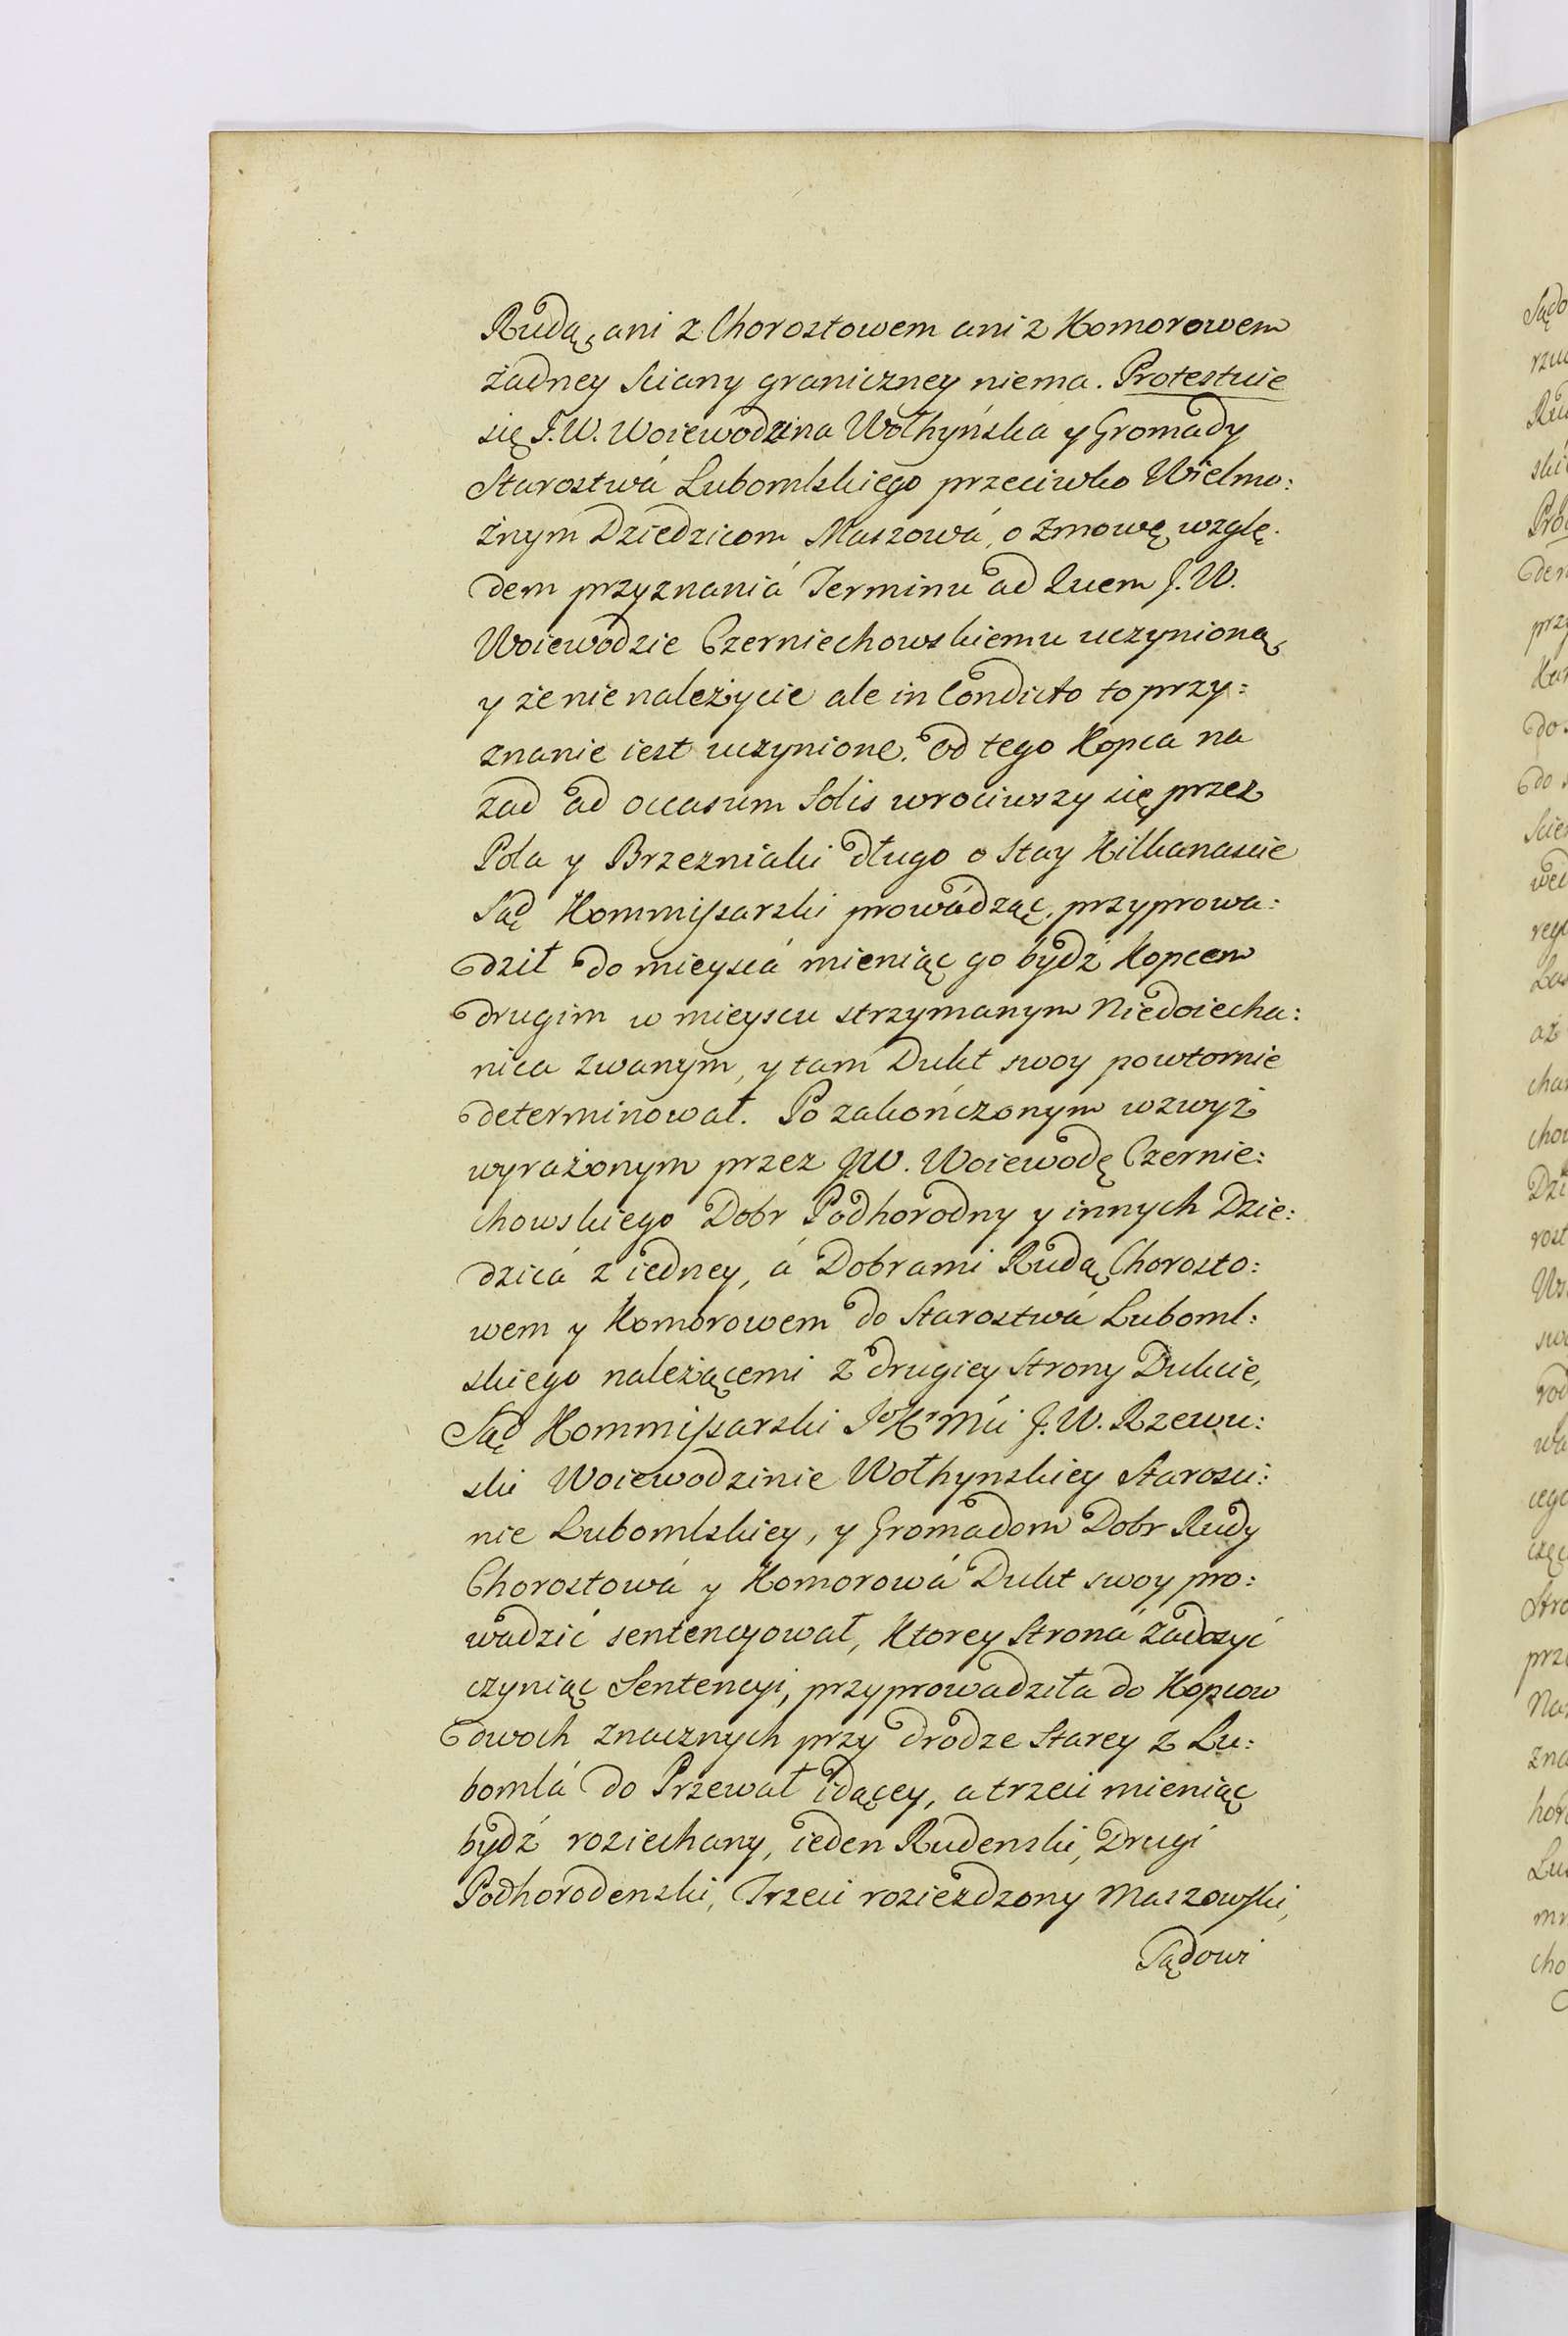 Rudą, ani z Chorostowem ani z Komorowem
żadney sciany graniczney niema. Protestuie
się J.W. Woiewodzina Wołhyńska y Gromady
Starostwá Lubomlskiego przeciwko Wielmo:
żnym Dziedzicom Maszowá, o zmowę wzglę.
dem przyznaniá Terminu ad Quem J.W.
Woiewodzie Czerniechowskiemu uczynioną,
y że nienależycie ale in Condicto to przy:
znanie iest uczynione. Od tego Kopca na
zad ad occasum Solis wrociwszy się przez
Pola y Brzezniaki długo o Stay Kilkanascie
Sąd Kommissarski prowádząc, przyprowa:
dził do mieyscá mieniąc go bydź Kopcem
drugim w mieyscu strzymanym Niedoiecha:
nica zwanym, y tam Dukt swoy powtornie
determinował. Po zakończonym wzwyż
wyrażonym przez JW. Woiewodę Czernie:
chowskiego Dobr Podhorodny y innych Dzie:
dzicá z iedney, á Dobrami Rudą Chorosto:
wem y Komorowem do Starostwá Luboml:
skiego należącemi z drugiey strony Dukcie,
Sąd Kommissarski J.W. Rzewu:
ski Woiewodzinie Wołhynskiey Starosci:
nie Lubomlskiey, y Gromadom Dobr Rudy
Chorostowá y Komorowá Dukt swoy pro:
wadzić sentencyował, Ktorey Stroná zadosyć
czyniąc Sentencyi, przyprowadziła do Kopcow
dwoch znacznych przy drodze Starey z Lu:
bomlá do Przewał idącey, a trzeci mieniąc
bydź roziechany, ieden Rudenski, Drugi
Podhorodenski, Trzeci rozieżdzony Maszowski,
Sądowi